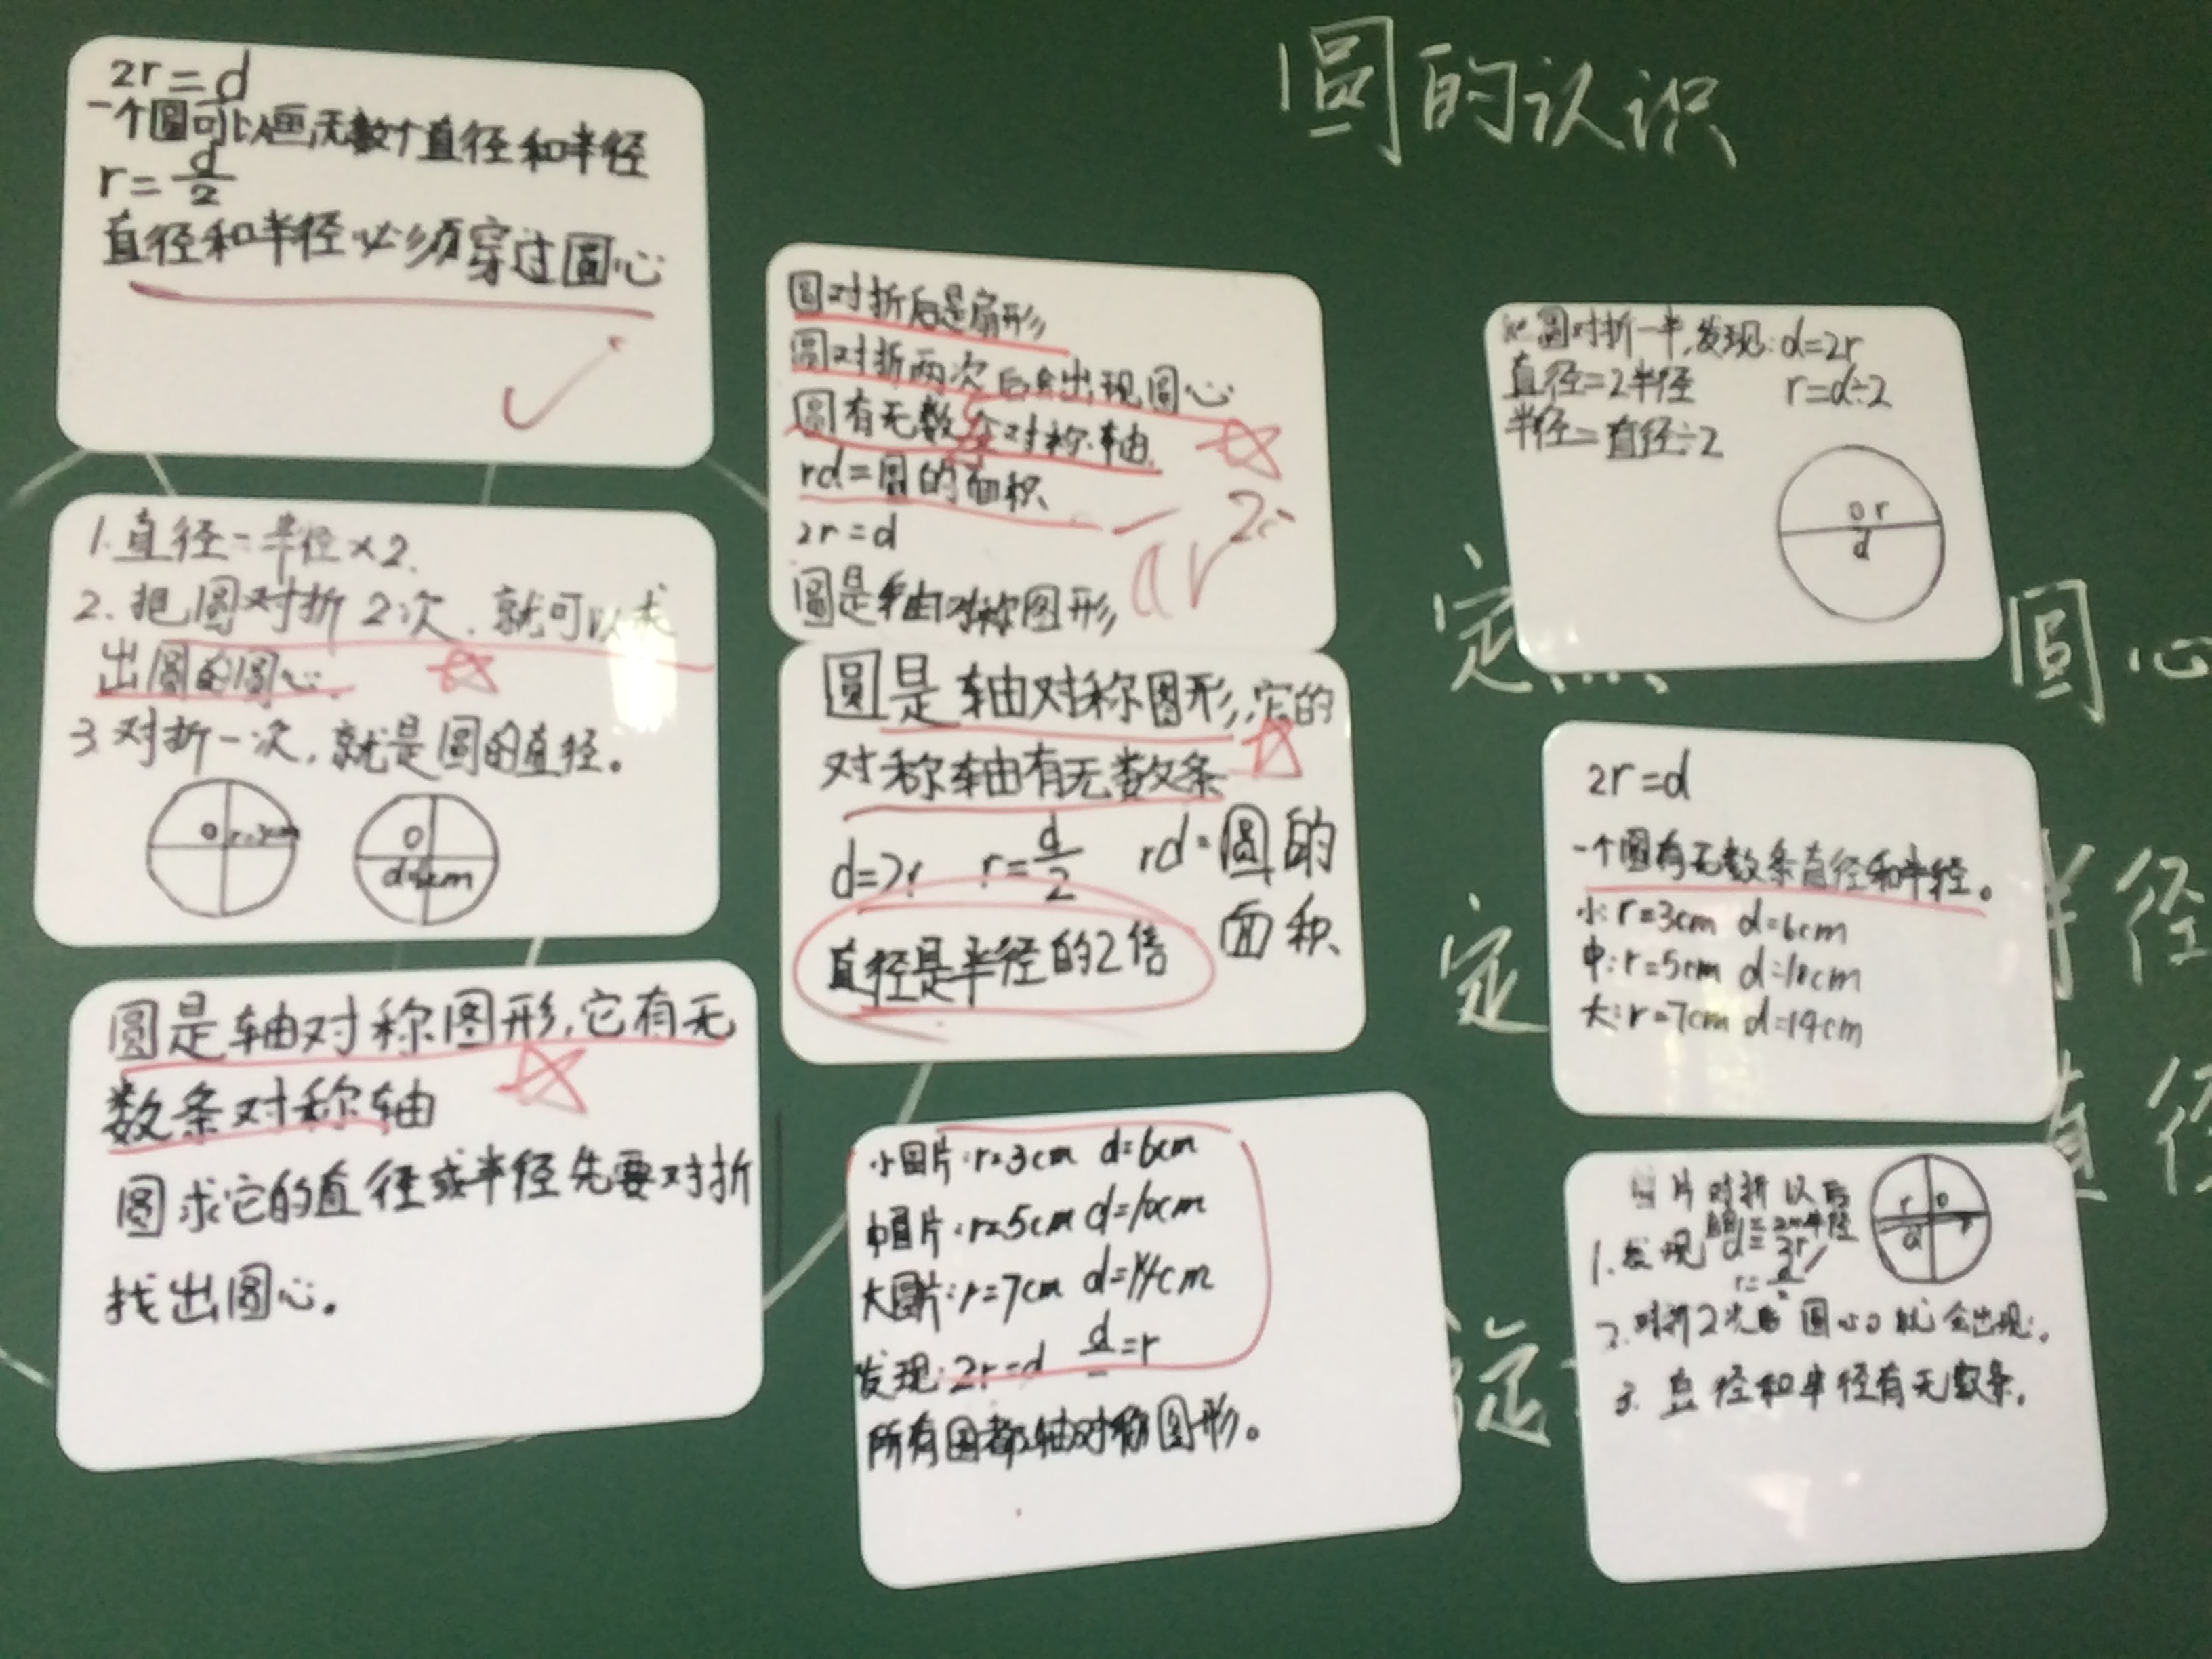 圆的认识
2r=d
一个圆可以画无数个直径和半径
r=d/2
直径和半径必须穿过圆心
1.直径=半径×2.
2.把圆对折2次.就可以求
出圆的圆心.
3.对折一次,就是圆的直径。
O r=3cm
O
圆是轴对称图形,它有无
数条对称轴
圆求它的直径或半径先要对折
找出圆心。
圆对折后是扇形
圆对折两次后会出现圆心
圆有无数条对称轴.
rd=圆的面积
2r=d
圆是轴对称图形
圆是轴对称图形,它的
对称轴有无数条
d=2r r=d/2 rd=圆的
面积
直径是半径的2倍
小圆片:r=3cm d=6cm
中圆片:r=5cm d=10cm
大圆片:r=7cm d=14cm
发现:2r=d
所有圆都轴对称图形。
圆对折一半,发现:d=2r
直径=2半径 r=d÷2
半径=直径÷2
O r
d
定 圆心
2r=d
一个圆有无数条直径和半径。
小:r=3cm d=6cm
中:r=5cm d=10cm
大:r=7cm d=14cm
定 半径
直径
片对折以后
1.发现
r O
d
2.对折2次后圆心O就会出现。
3.直径和半径有无数条.